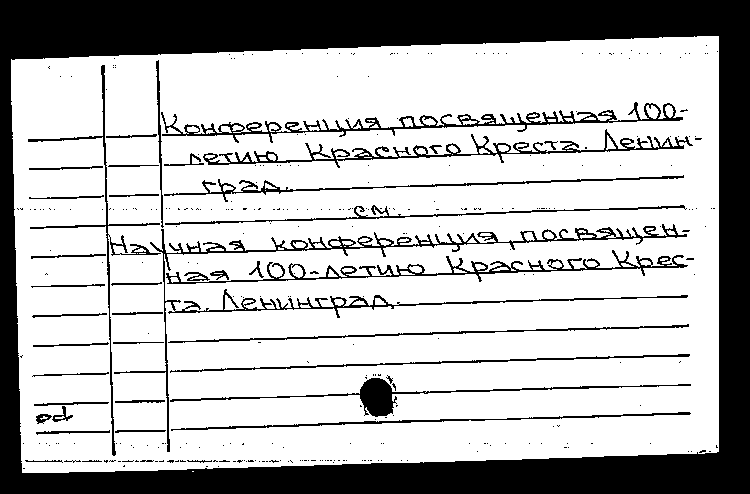 Конференция, посвященная 100-
летию Красного Креста. Ленин-
град.
см.
Научная конференция, посвящен-
ная 100-летию Красного Крес-
та. Ленинград.